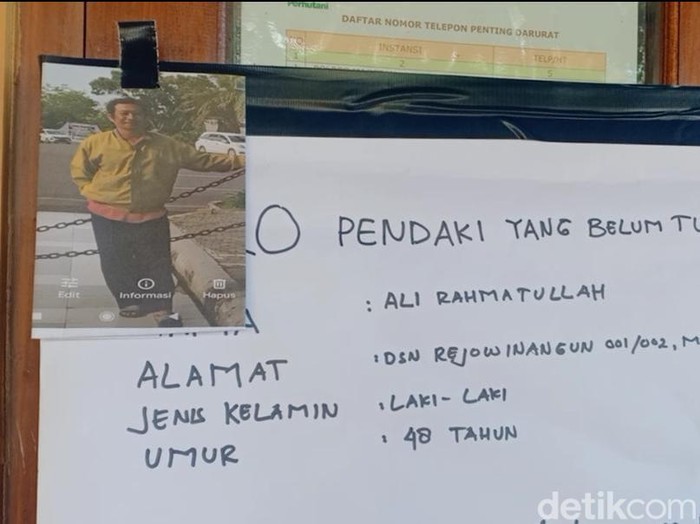 Perhutani
DAFTAR NOMOR TELEPON PENTING DARURAT
NO INSTANSI TELP/HT
1 2
PENDAKI YANG BELUM TU
: ALI RAHMATULLAH
ALAMAT : DSN REJOWINANGUN 001/002, M
JENIS KELAMIN : LAKI-LAKI
UMUR : 48 TAHUN
Edit Informasi Hapus
detikcom